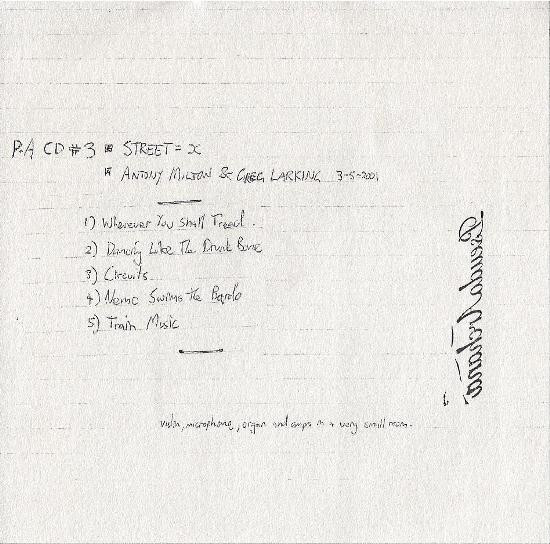 P.A CD #3 STREET = x
ANTONY MILTON & GREG LARKING 3-5-2001
1) Wherever You Shall Tread.
2) Dancing Like The Drunk Bone
3) Circuits
4) Nemo Swims the Bardo
5) Train Music
violin, microphone, organ and amps in a very small room.
Pseudo Arcana